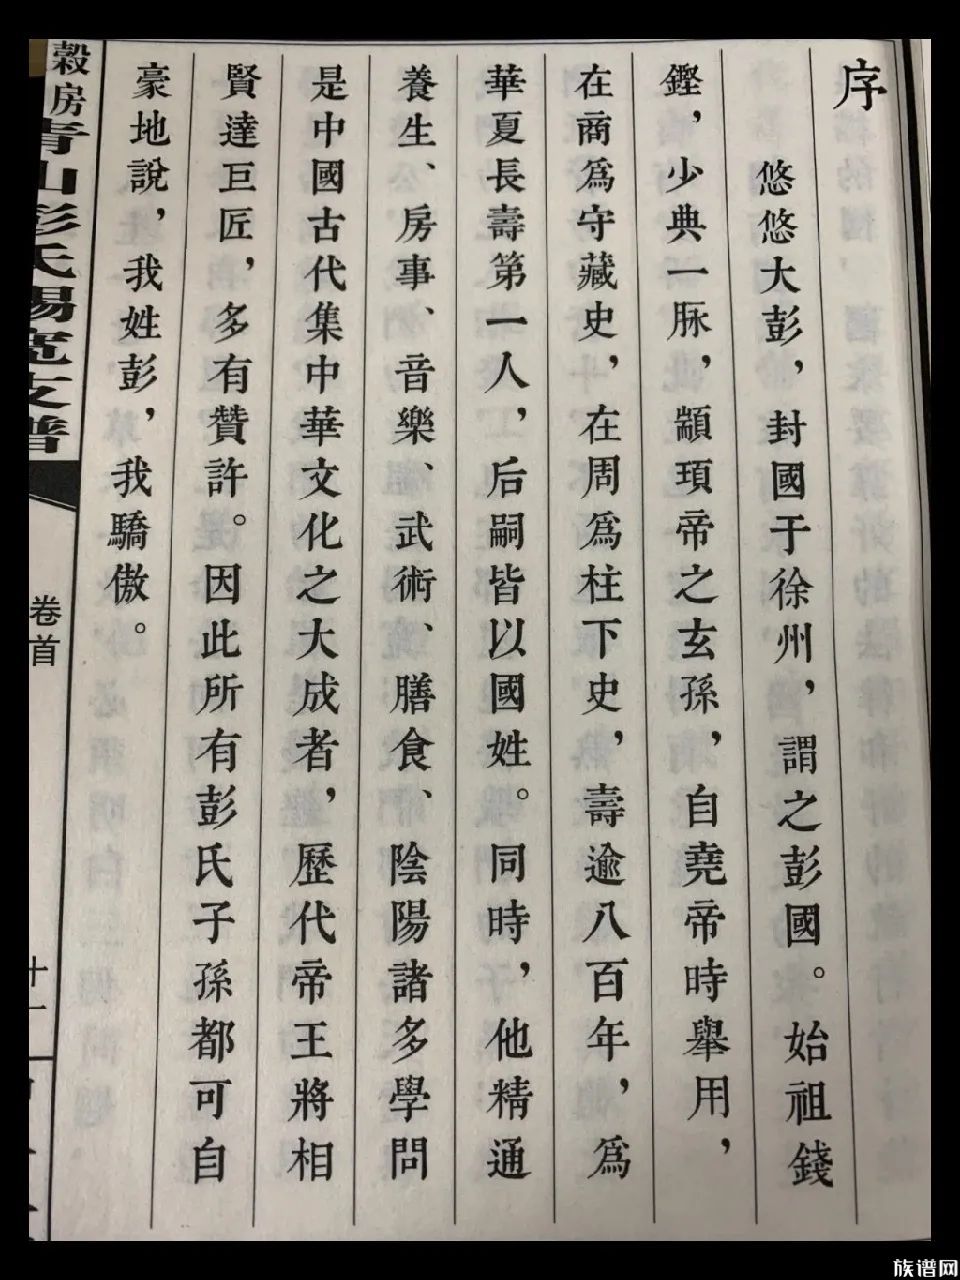 序
悠悠大彭，封國于徐州，謂之彭國。始祖錢
鏗，少典一脉，顓頊帝之玄孫，自堯帝時舉用，
在商爲守藏史，在周爲柱下史，壽逾八百年，爲
華夏長壽第一人，后嗣皆以國姓。同時，他精通
養生、房事、音樂、武術、膳食、陰陽諸多學問
是中國古代集中華文化之大成者，歷代帝王將相
賢達巨匠，多有贊許。因此所有彭氏子孫都可自
豪地說，我姓彭，我驕傲。
穀房青山彭氏錫寬支譜
卷首
十一
族谱网